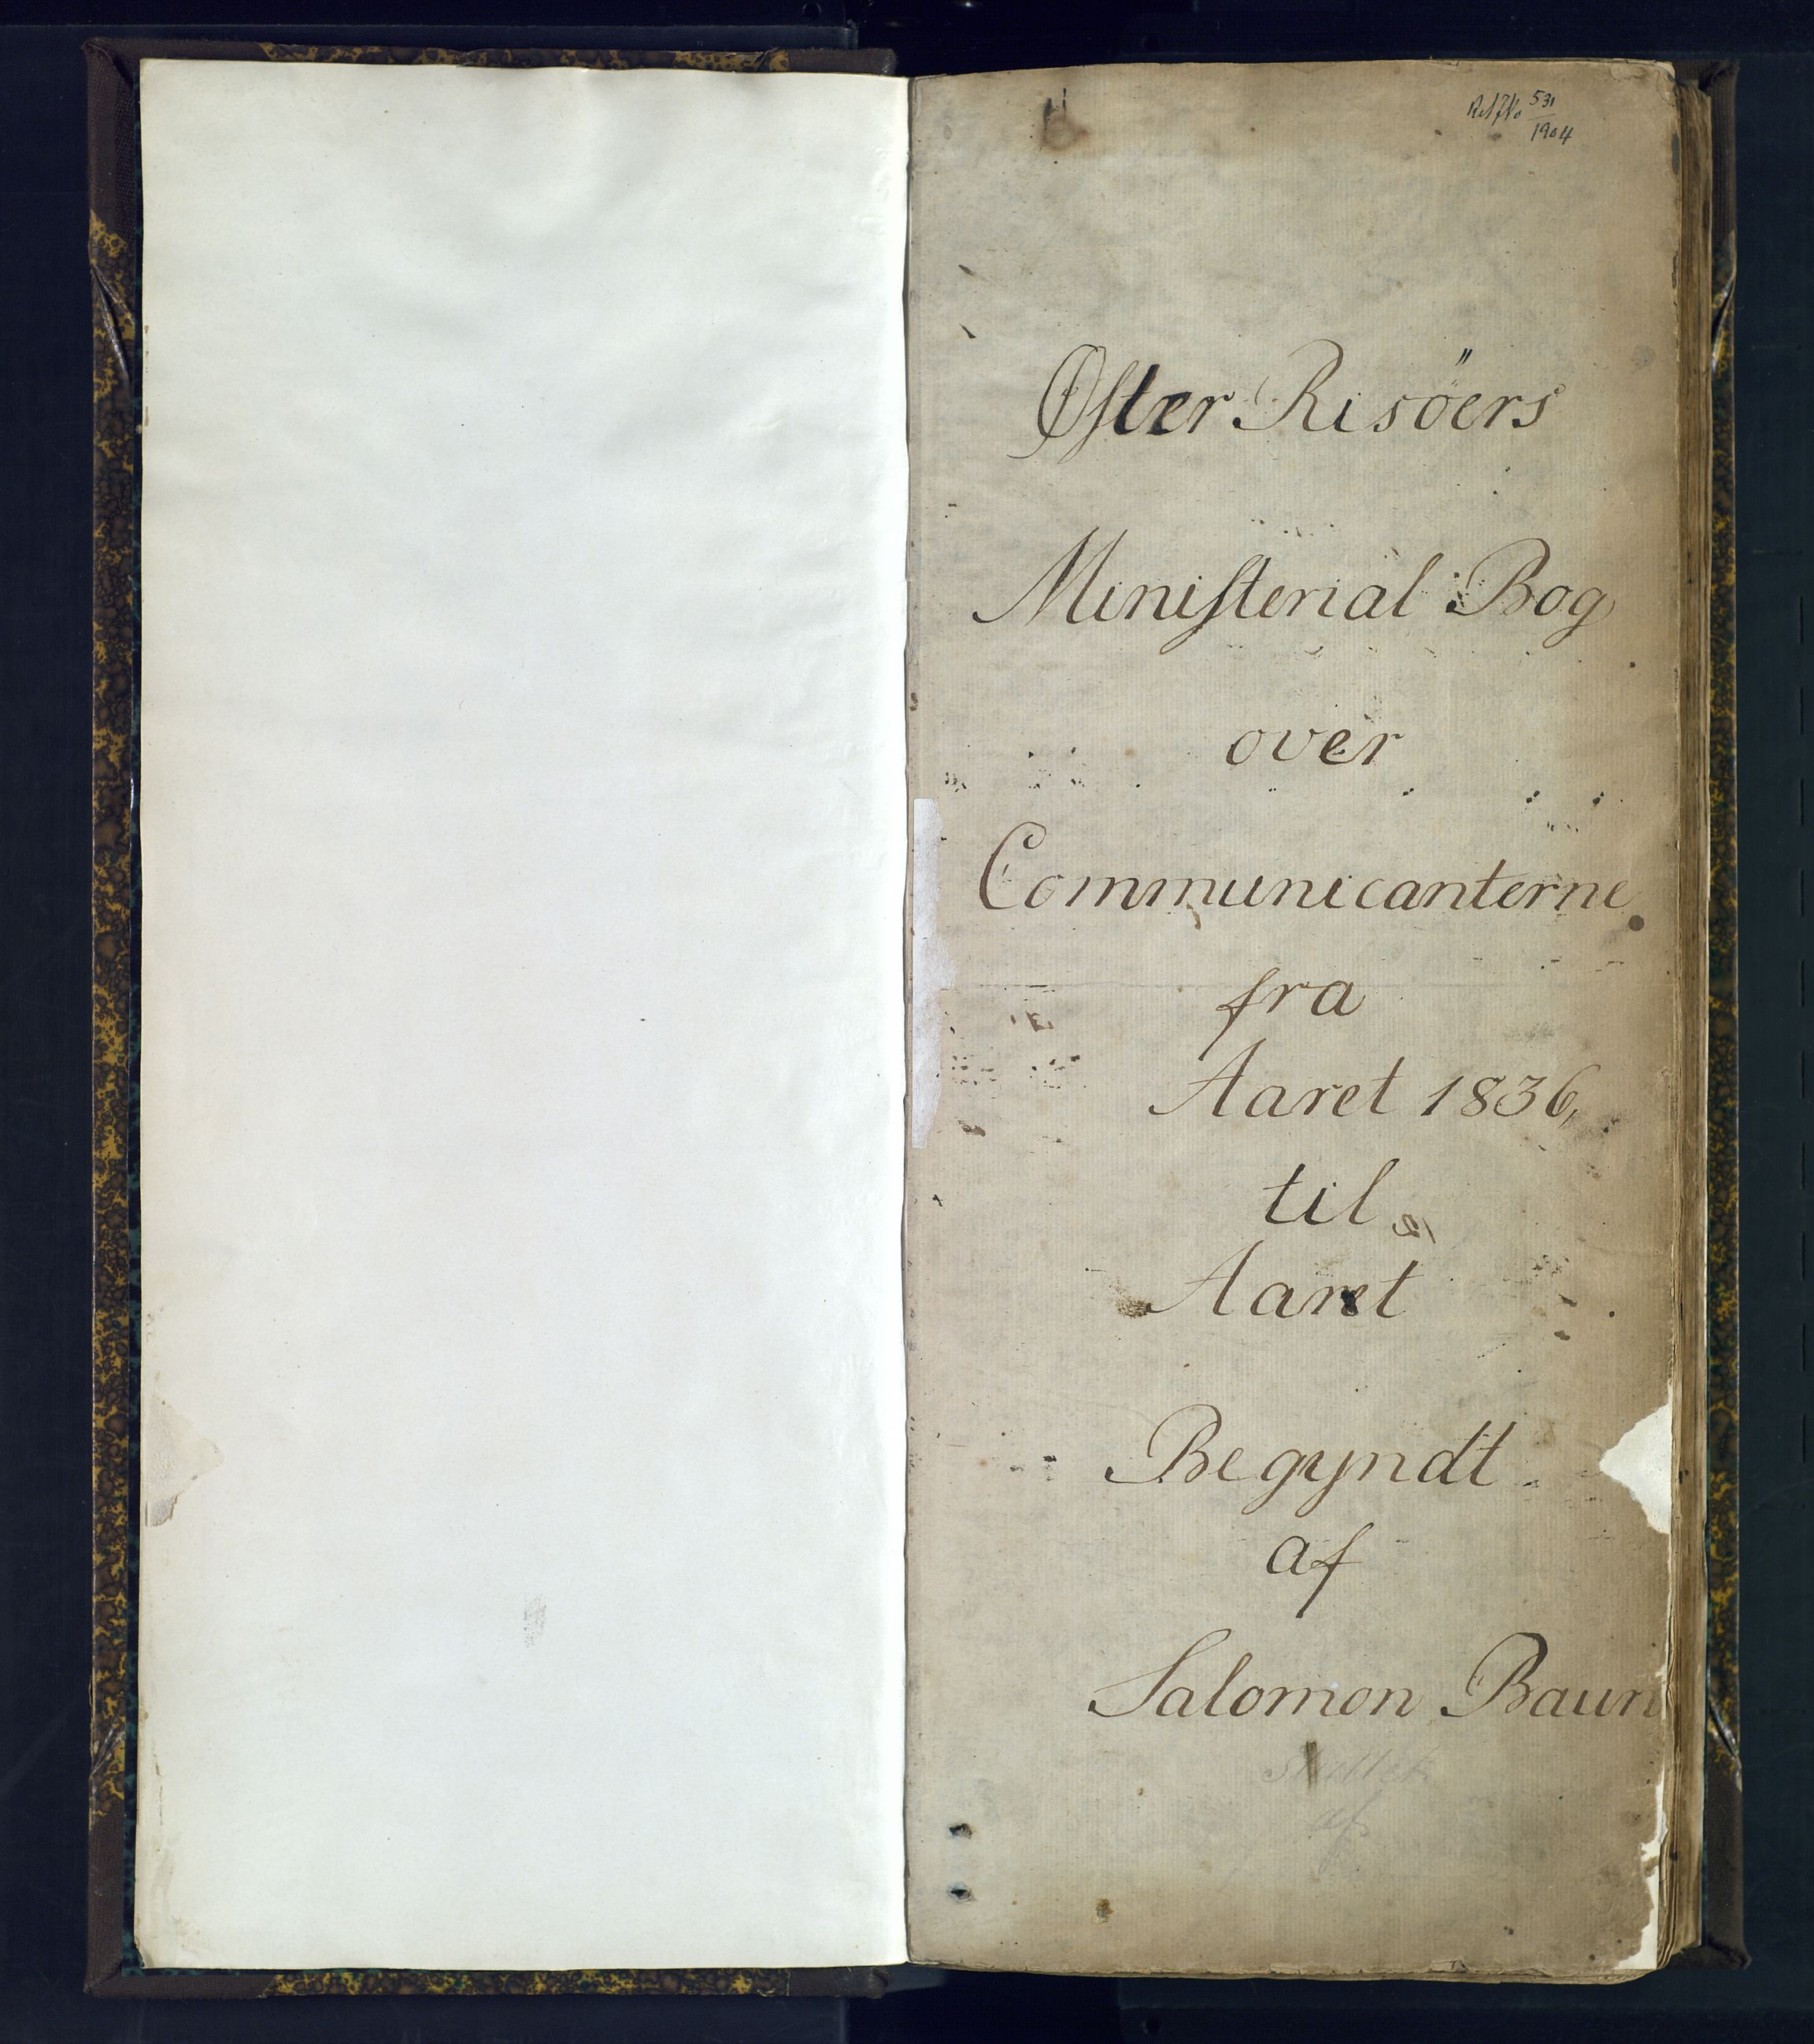 531
1904
Øster Risöers
Ministerial Bog
over
Communicanterne
fra
Aaret 1836,
til
Aaret
Begyndt
af
Salomon Baun
Sluttet
af